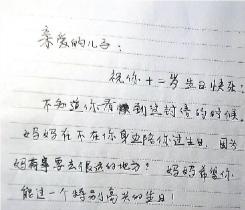 亲爱的儿子：
祝你十二岁生日快乐！
不知道你看到这封信的时候，
妈妈在不在你身边陪你过生日，因为
妈有事要去很远的地方？妈妈希望你
能过一个特别高兴的生日！